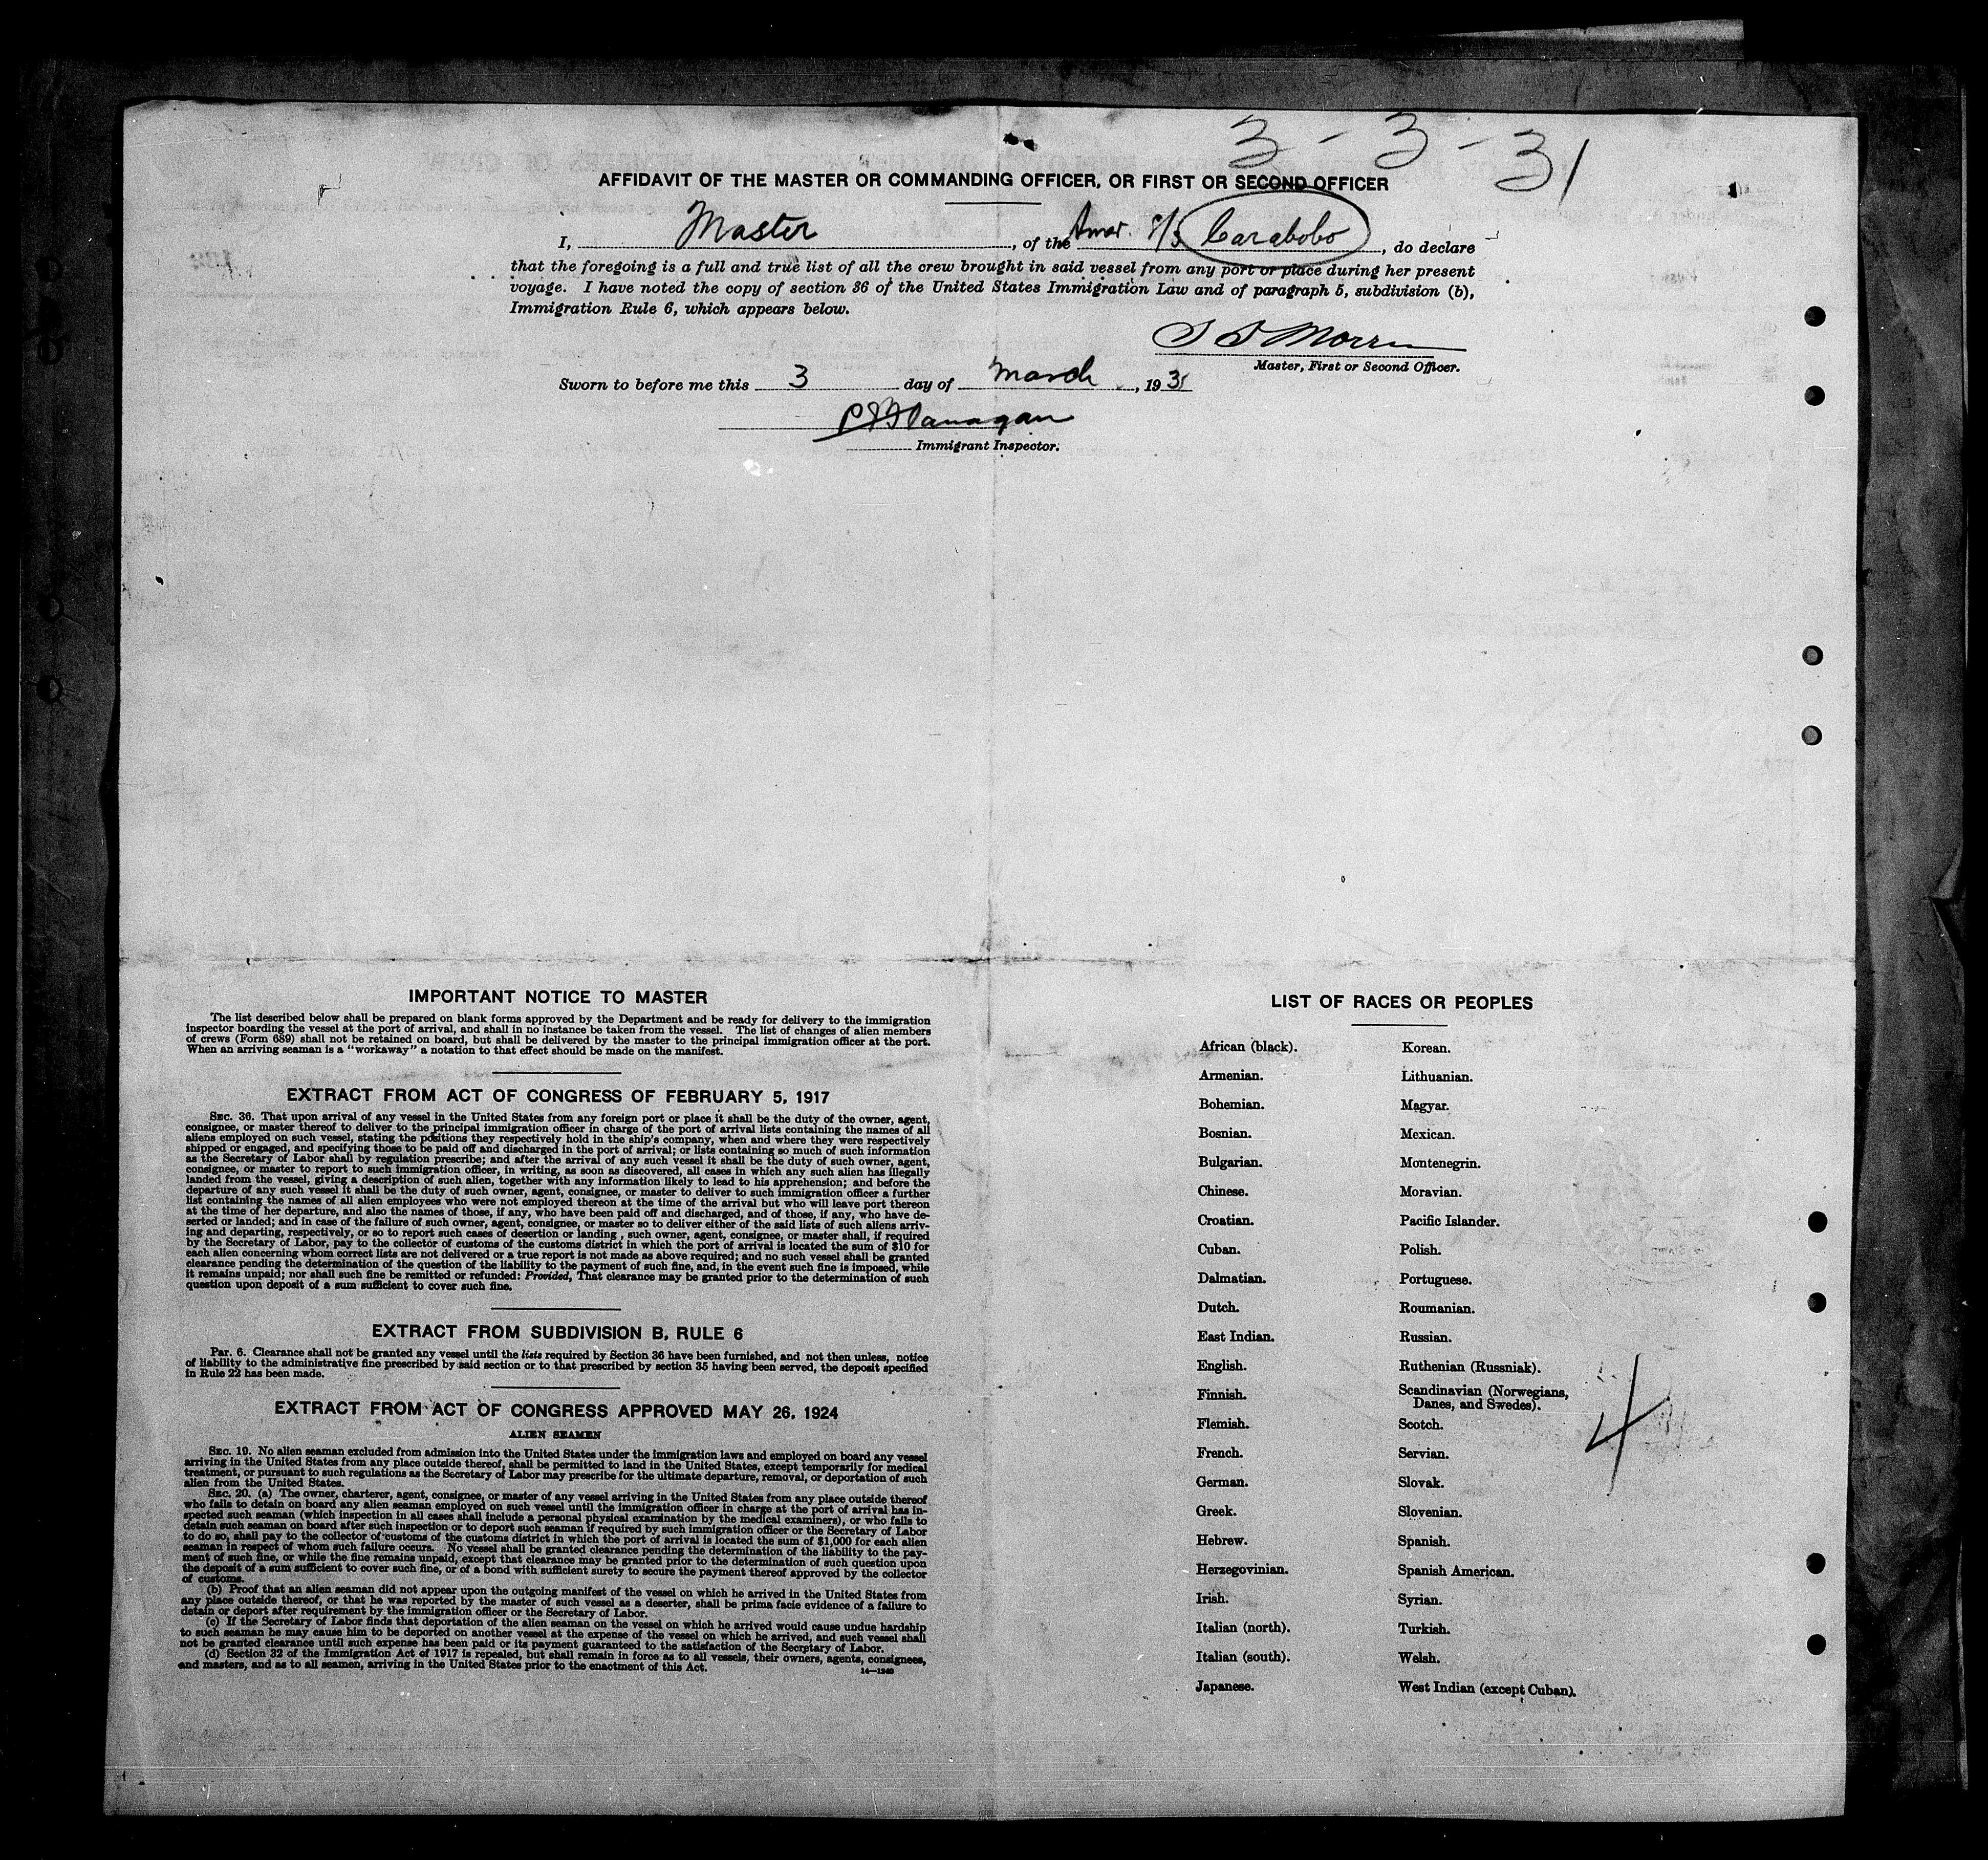 3 - 3 - 31
AFFIDAVIT OF THE MASTER OR COMMANDING OFFICER, OR FIRST OR SECOND OFFICER
I, Master, of the Amer. S/S Carabobo, do declare
that the foregoing is a full and true list of all the crew brought in said vessel from any port or place during her present
voyage. I have noted the copy of section 36 of the United States Immigration Law and of paragraph 5, subdivision (b),
Immigration Rule 6, which appears below.
Master, First or Second Officer.
Sworn to before me this 3 day of March, 1931
Flanagan
Immigrant Inspector.
IMPORTANT NOTICE TO MASTER
The list described below shall be prepared on blank forms approved by the Department and be ready for delivery to the immigration
inspector boarding the vessel at the port of arrival, and shall in no instance be taken from the vessel. The list of changes of alien members
of crews (Form 689) shall not be retained on board, but shall be delivered by the master to the principal immigration officer at the port.
When an arriving seaman is a "workaway" a notation to that effect should be made on the manifest.
EXTRACT FROM ACT OF CONGRESS OF FEBRUARY 5, 1917
SEC. 36. That upon arrival of any vessel in the United States from any foreign port or place it shall be the duty of the owner, agent,
consignee, or master thereof to deliver to the principal immigration officer in charge of the port of arrival lists containing the names of all
aliens employed on such vessel, stating the positions they respectively hold in the ship's company, when and where they were respectively
shipped or engaged, and specifying those to be paid off and discharged in the port of arrival; or lists containing so much of such information
as the Secretary of Labor shall by regulation prescribe; and after the arrival of any such vessel it shall be the duty of such owner, agent,
consignee, or master to report to such immigration officer, in writing, as soon as discovered, all cases in which any such alien has illegally
landed from the vessel, giving a description of such alien, together with any information likely to lead to his apprehension; and before the
departure of any such vessel it shall be the duty of such owner, agent, consignee, or master to deliver to such immigration officer a further
list containing the names of all alien employees who were not employed thereon at the time of the arrival but who will leave port thereon
at the time of her departure, and also the names of those, if any, who have been paid off and discharged, and of those, if any, who have de-
serted or landed; and in case of the failure of such owner, agent, consignee, or master so to deliver either of the said lists of such aliens arriv-
ing and departing, respectively, or so to report such cases of desertion or landing, such owner, agent, consignee, or master shall, if required
by the Secretary of Labor, pay to the collector of customs of the customs district in which the port of arrival is located the sum of $10 for
each alien concerning whom correct lists are not delivered or a true report is not made as above required; and no such vessel shall be granted
clearance pending the determination of the question of the liability to the payment of such fine, and, in the event such fine is imposed, while
it remains unpaid; nor shall such fine be remitted or refunded: Provided, That clearance may be granted prior to the determination of such
question upon deposit of a sum sufficient to cover such fine.
EXTRACT FROM SUBDIVISION B, RULE 6
Par. 6. Clearance shall not be granted any vessel until the lists required by Section 36 have been furnished, and not then unless, notice
of liability to the administrative fine prescribed by said section or to that prescribed by section 35 having been served, the deposit specified
in Rule 22 has been made.
EXTRACT FROM ACT OF CONGRESS APPROVED MAY 26, 1924
ALIEN SEAMEN
SEC. 19. No alien seaman excluded from admission into the United States under the immigration laws and employed on board any vessel
arriving in the United States from any place outside thereof, shall be permitted to land in the United States, except temporarily for medical
treatment, or pursuant to such regulations as the Secretary of Labor may prescribe for the ultimate departure, removal, or deportation of such
alien from the United States.
SEC. 20. (a) The owner, charterer, agent, consignee, or master of any vessel arriving in the United States from any place outside thereof
who fails to detain on board any alien seaman employed on such vessel until the immigration officer in charge at the port of arrival has in-
spected such seaman (which inspection in all cases shall include a personal physical examination by the medical examiners), or who fails to
detain such seaman on board after such inspection or to deport such seaman if required by such immigration officer or the Secretary of Labor
to do so, shall pay to the collector of customs of the customs district in which the port of arrival is located the sum of $1,000 for each alien
seaman in respect of whom such failure occurs. No vessel shall be granted clearance pending the determination of the liability to the pay-
ment of such fine, or while the fine remains unpaid, except that clearance may be granted prior to the determination of such question upon
the deposit of a sum sufficient to cover such fine, or of a bond with sufficient surety to secure the payment thereof approved by the collector
of customs.
(b) Proof that an alien seaman did not appear upon the outgoing manifest of the vessel on which he arrived in the United States from
any place outside thereof, or that he was reported by the master of such vessel as a deserter, shall be prima facie evidence of a failure to
detain or deport after requirement by the immigration officer or the Secretary of Labor.
(c) If the Secretary of Labor finds that deportation of the alien seaman on the vessel on which he arrived would cause undue hardship
to such seaman he may cause him to be deported on another vessel at the expense of the vessel on which he arrived, and such vessel shall
not be granted clearance until such expense has been paid or its payment guaranteed to the satisfaction of the Secretary of Labor.
(d) Section 32 of the Immigration Act of 1917 is repealed, but shall remain in force as to all vessels, their owners, agents, consignees,
and masters, and as to all seamen, arriving in the United States prior to the enactment of this Act.
14—1240
LIST OF RACES OR PEOPLES
African (black).
Armenian.
Bohemian.
Bosnian.
Bulgarian.
Chinese.
Croatian.
Cuban.
Dalmatian.
Dutch.
East Indian.
English.
Finnish.
Flemish.
French.
German.
Greek.
Hebrew.
Herzegovinian.
Irish.
Italian (north).
Italian (south).
Japanese.
Korean.
Lithuanian.
Magyar.
Mexican.
Montenegrin.
Moravian.
Pacific Islander.
Polish.
Portuguese.
Roumanian.
Russian.
Ruthenian (Russniak).
Scandinavian (Norwegians,
Danes, and Swedes).
Scotch.
Servian.
Slovak.
Slovenian.
Spanish.
Spanish American.
Syrian.
Turkish.
Welsh.
West Indian (except Cuban).
4